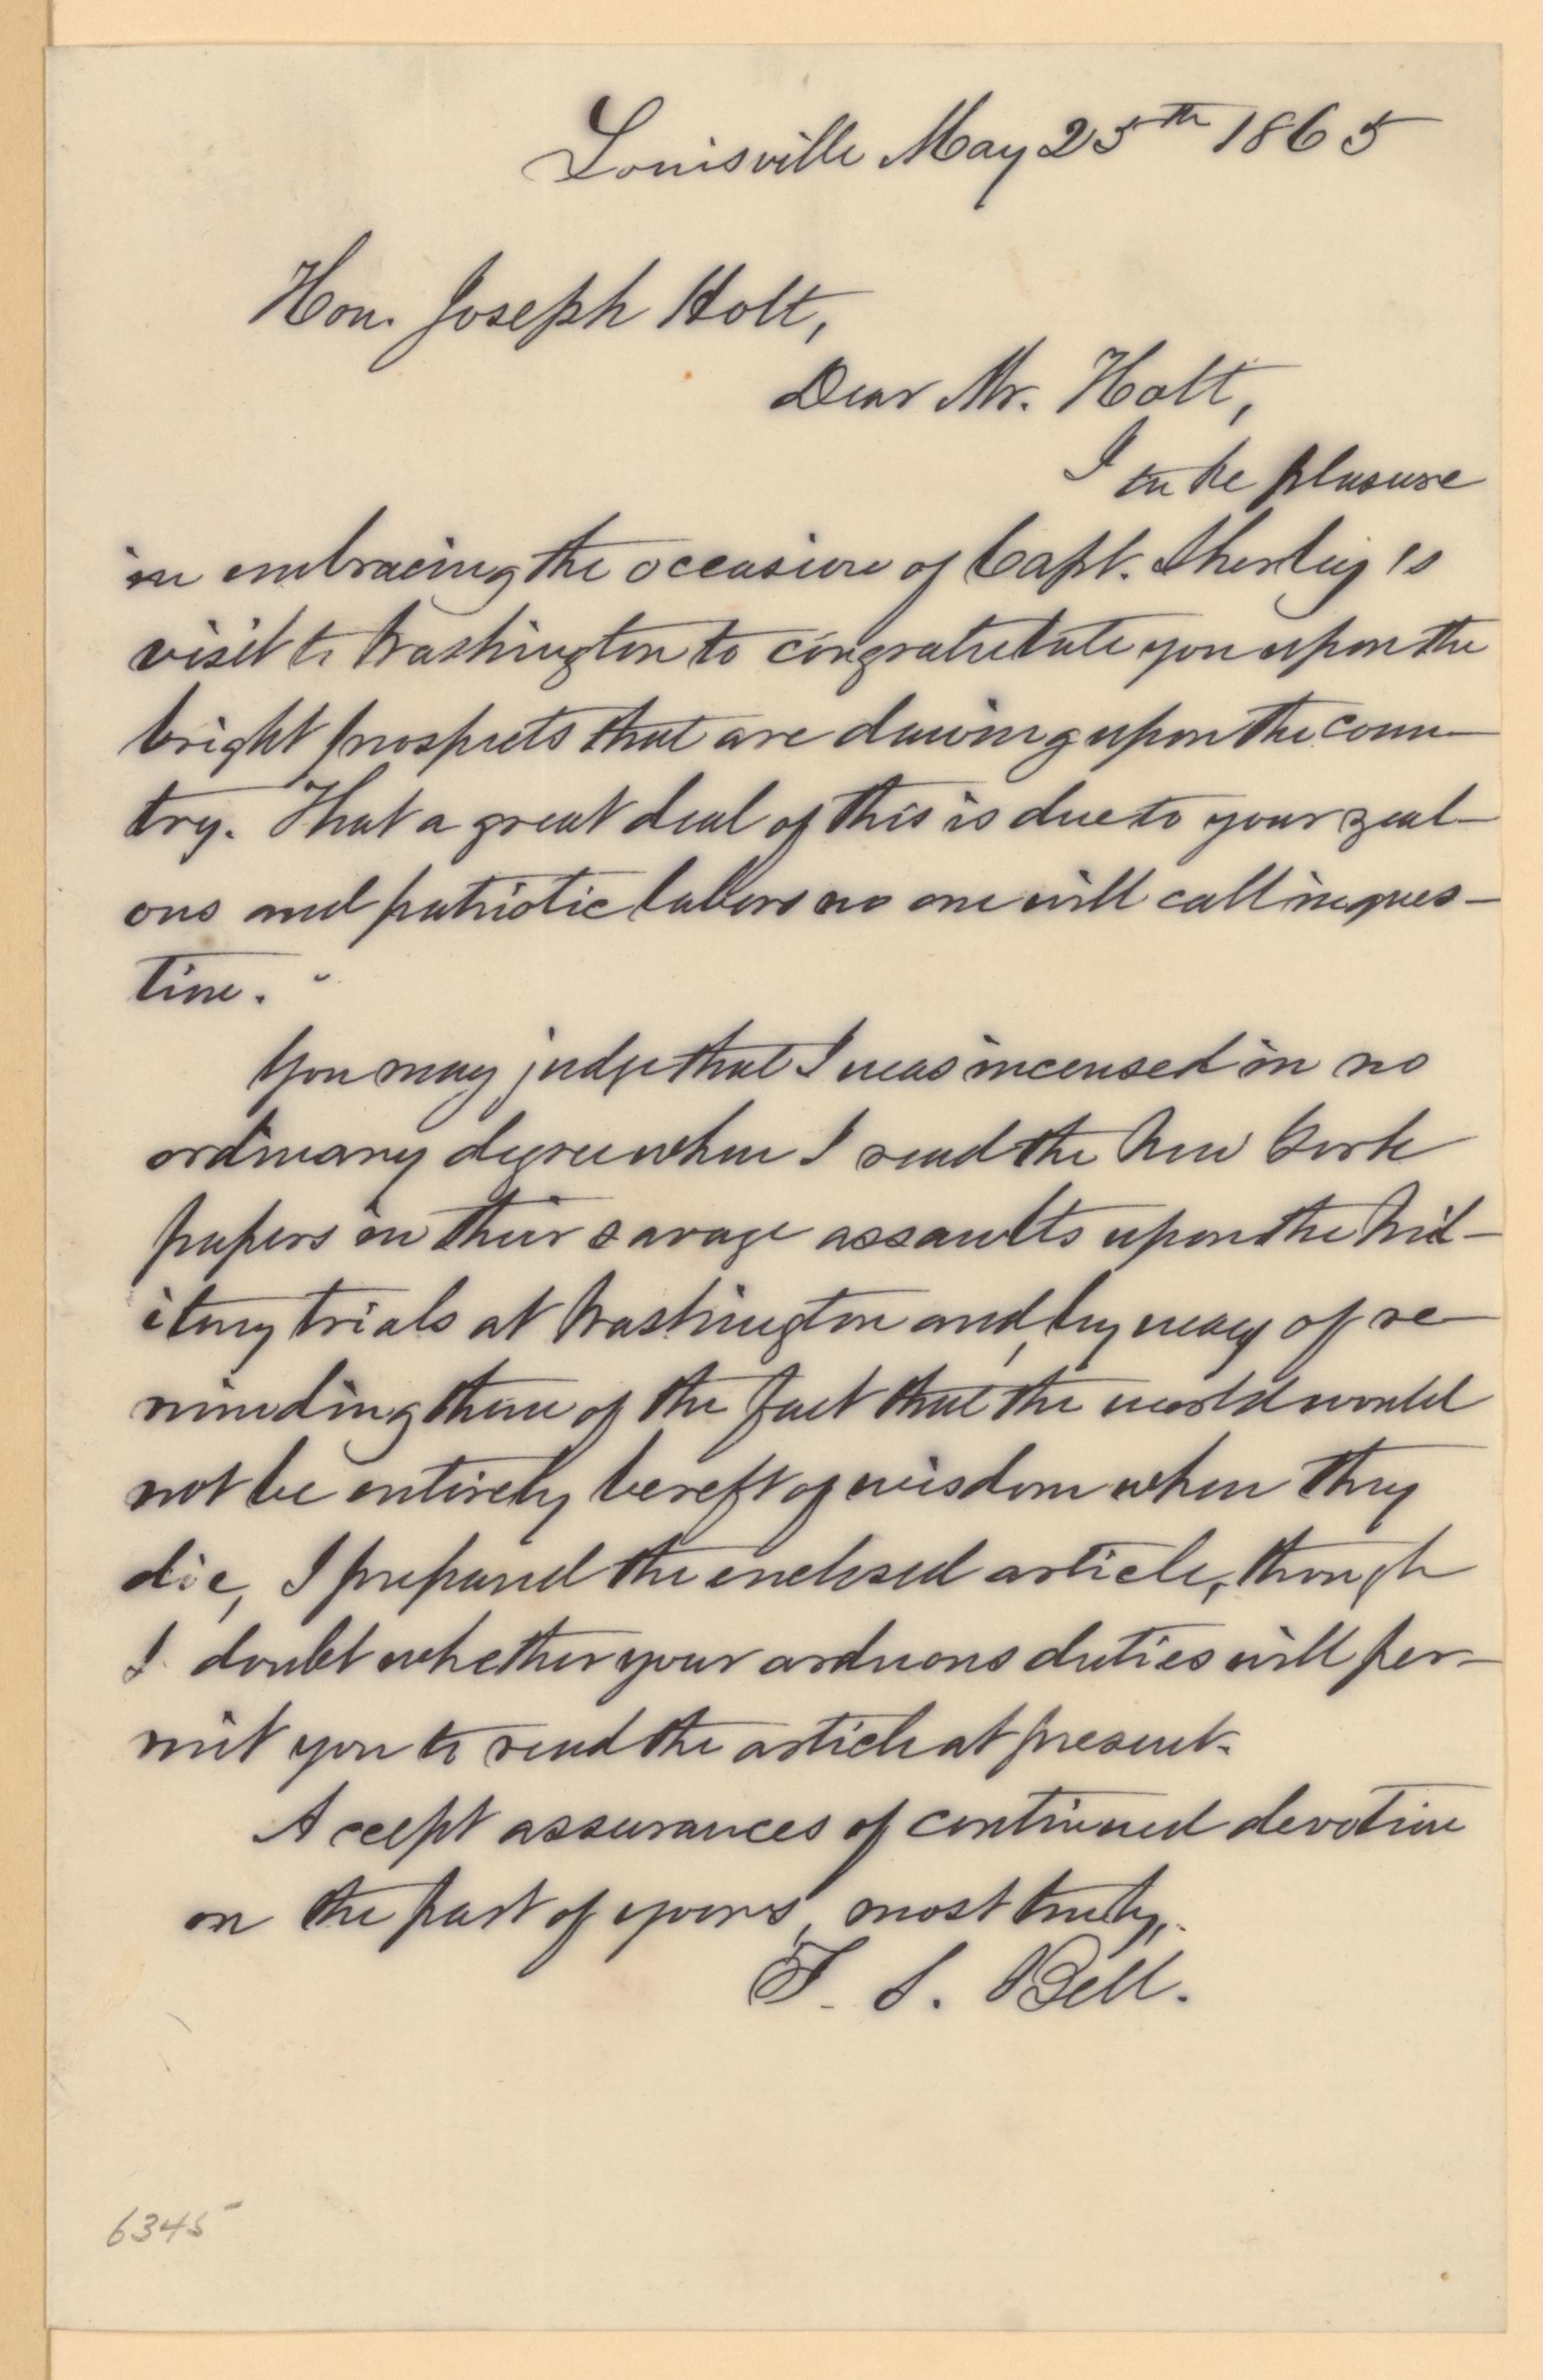 Louisville May 25th 1865
Hon. Joseph Holt,
Dear Mr. Holt,
I take pleasure
in embracing the occasion of Capt. Sherley's
visit to Washington to congratulate you upon the
bright prospects that are dawing upon the coun-
try. That a great deal of this is due to your zeal-
ous and patriotic labors no one will call in ques-
tion.
You may judge that I was incensed in no
ordinary degree when I read the New York
papers in their savage assaults upon the Mil-
itary trials at Washington and, by way of re-
minding them of the fact that the world would
not be entirely bereft of wisdom when they
die, I prepared the enclosed article, though
I doubt whether your arduous duties will per-
mit you to read the article at present.
Accept assurances of continued devotion
on the part of yours, most truly,
T. S. Bell.
6345